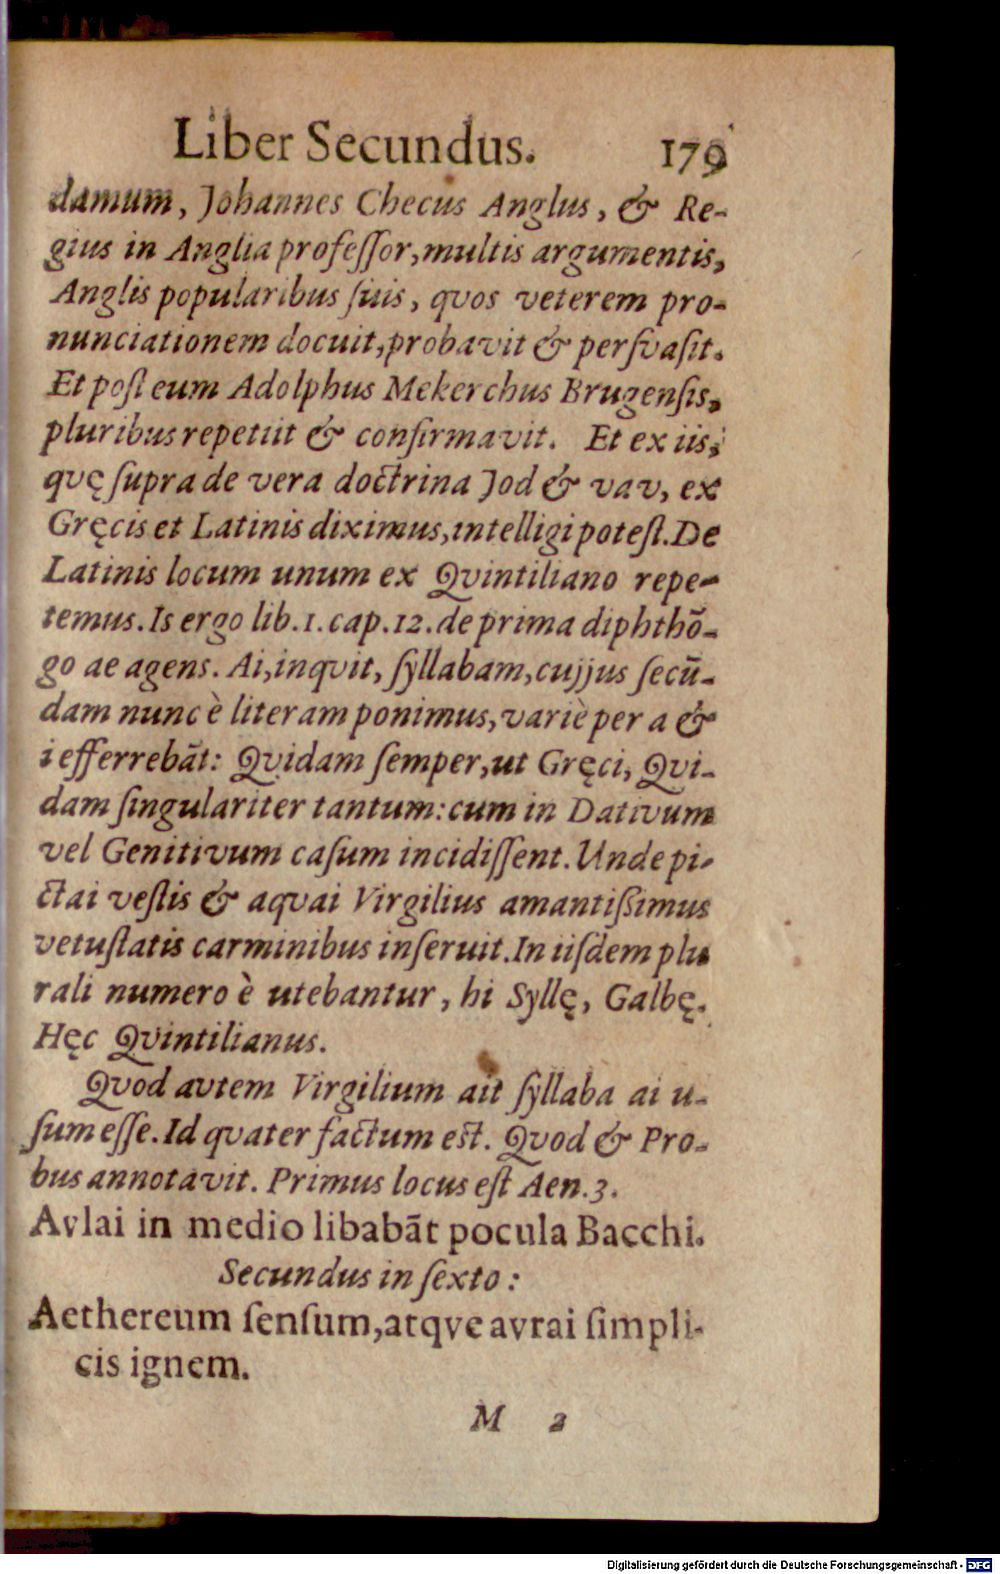 Liber Secundus. 179
damum, Johannes Checus Anglus, & Re-
gius in Anglia profeſſor, multis argumentis,
Anglis popularibus ſuis, qvos veterem pro-
nunciationem docuit, probavit & perſvaſit.
Et poſt eum Adolphus Mekerchus Brugenſis,
pluribus repetiit & confirmavit. Et ex iis,
qvę ſupra de vera doctrina Jod & vav, ex
Gręcis et Latinis diximus, intelligi poteſt. De
Latinis locum unum ex Qvintiliano repe-
temus. Is ergo lib. 1. cap. 12. de prima diphthõ-
go ae agens. Ai, inqvit, ſyllabam, cujjus ſecũ-
dam nunc è literam ponimus, variè per a &
i efferrebãt: Qvidam ſemper, ut Gręci, Qvi-
dam ſingulariter tantum: cum in Dativum
vel Genitivum caſum incidiſſent. Unde pi-
ctai veſtis & aqvai Virgilius amantißimus
vetuſtatis carminibus inſeruit. In iiſdem plu
rali numero è utebantur, hi Syllę, Galbę.
Hęc Qvintilianus.
Qvod avtem Virgilium ait ſyllaba ai u-
ſum eſſe. Id qvater factum est. Qvod & Pro-
bus annotavit. Primus locus eſt Aen. 3.
Avlai in medio libabãt pocula Bacchi.
Secundus in ſexto:
Aethereum ſenſum, atqve avrai ſimpli-
cis ignem.
M 2
Digitalisierung gefördert durch die Deutsche Forschungsgemeinschaft - DFG